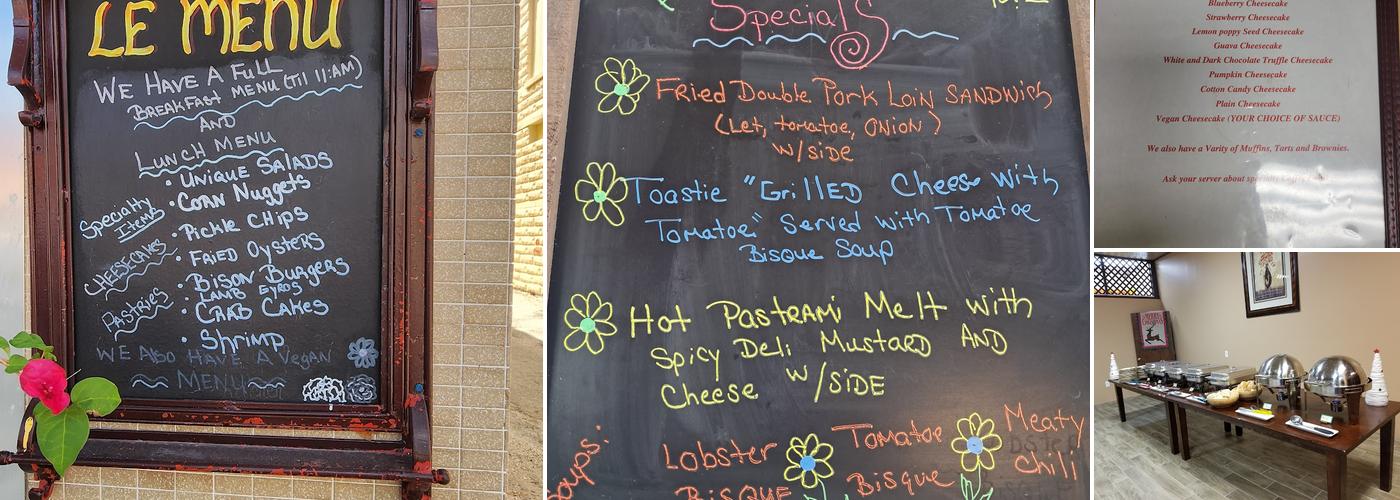 LE MENU
WE HAVE A FULL
BREAKFAST MENU (Til 11:AM)
AND
LUNCH MENU
• UNIQUE SALADS
• CORN NUGGETS
Specialty
Items
• Pickle CHips
• FRIED OYSTERS
CHEESECAKES
• BISON BURGERS
LAMB GYROS
PASTRIES
• CRAB CAKES
• SHRIMP
WE AlSO HAVE A VEGAN
MENU
Specials
FRied Double PORK LOIN SANDWICH
(Let, tomatoe, ONION)
W/SIDE
Toastie "GrillED Cheese with
Tomatoe" Served with Tomatoe
Bisque Soup
Hot PastRAMi Melt with
Spicy Deli MustaRD AND
Cheese W/SIDE
Soups:
Lobster
BISQUE
Tomatoe
Bisque
Meaty
Chili
Blueberry Cheesecake
Strawberry Cheesecake
Lemon poppy Seed Cheesecake
Guava Cheesecake
White and Dark Chocolate Truffle Cheesecake
Pumpkin Cheesecake
Cotton Candy Cheesecake
Plain Cheesecake
Vegan Cheesecake (YOUR CHOICE OF SAUCE)
We also have a Varity of Muffins, Tarts and Brownies.
Ask your server about specialty